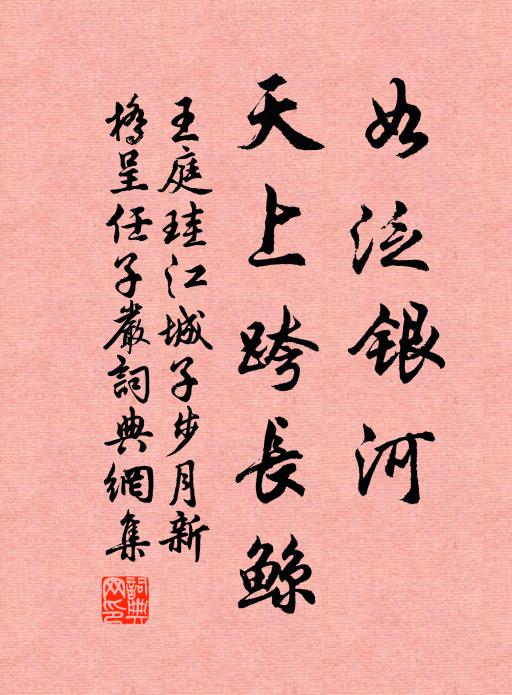 如泛銀河
天上跨長鯨
王庭珪江城子步月新
橋呈任子嚴詞典網集
詞典網印